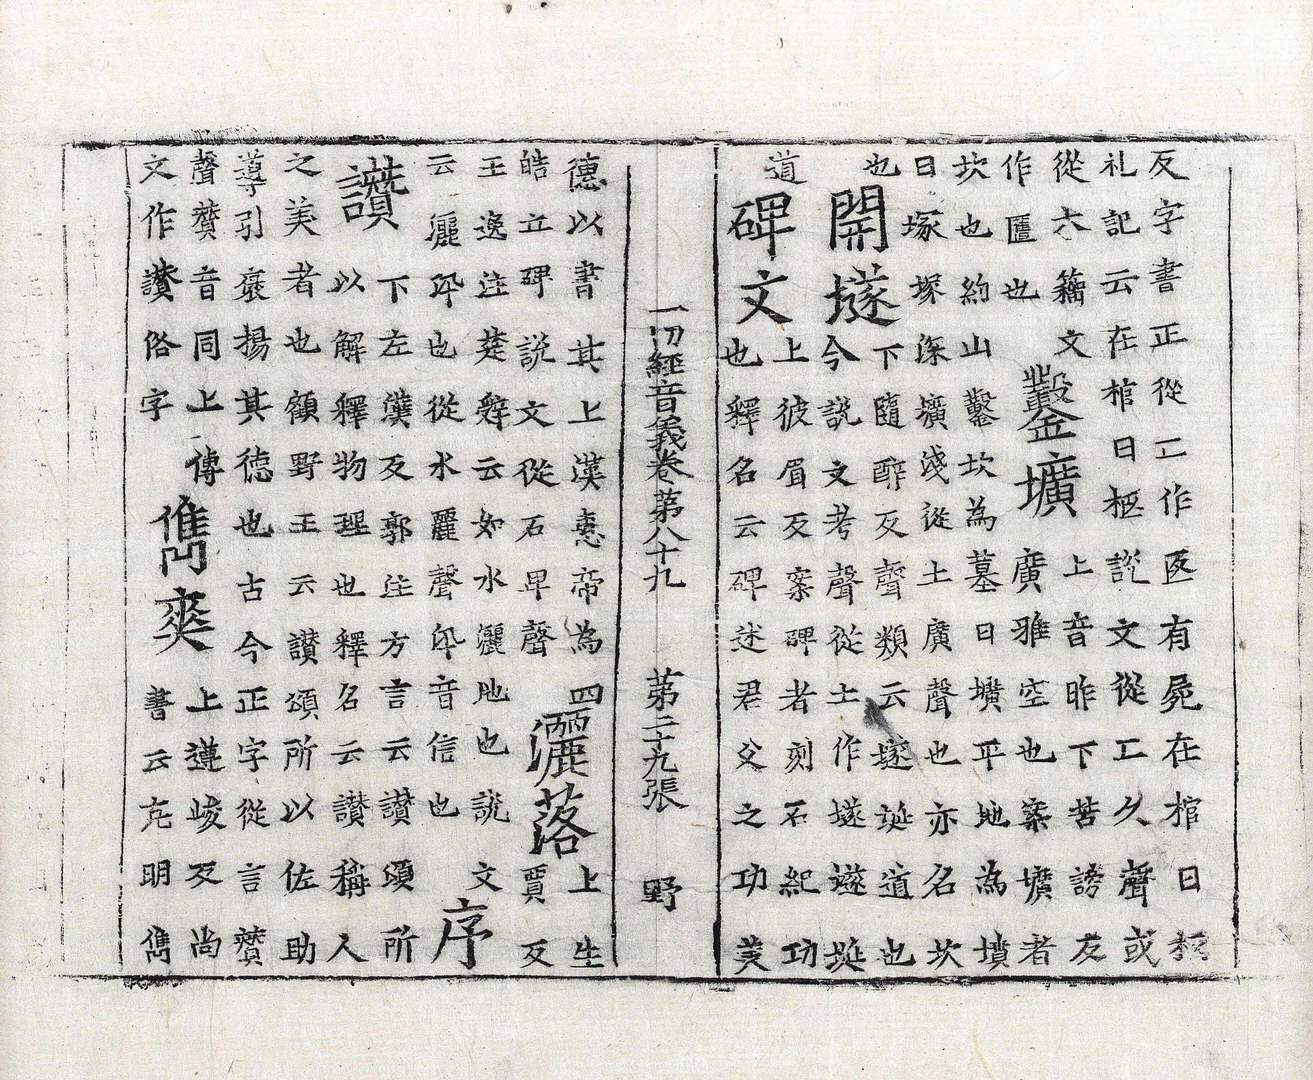 反字書正從匚作匛有屍在棺曰柩
礼記云在棺曰柩說文從匚久聲或
從六籀文
作匶也
鑿壙
上音昨下苦謗反
廣雅空也案壙者
坎也約山鑿坎為墓曰壙平地為墳
曰塚塚深壙淺從土廣聲也亦名坎
也
開墜
下隨醉反聲類云墜埏道也
今說文考聲從土作㙇㙇埏
道
碑文
上彼眉反案碑者刻石紀功
也釋名云碑述君父之功美
一切經音義卷第八十九 第二十九張 野
德以書其上漢惠帝為四
皓立碑說文從石卑聲
灑落
上生
賈反
王逸注楚辭云如水灑地也說文
云灑汛也從水麗聲汛音信也
序
讚
下左漢反郭注方言云讚頌所
以解釋物理也釋名云讚稱人
之美者也顧野王云讃頌所以佐助
導引褒揚其德也古今正字從言贊
聲贊音同上傳
文作讃俗字
雋爽
上遵峻反尚
書云克明雋